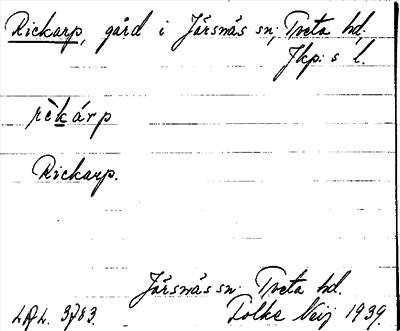 Rickarp, gård i Järsnäs sn, Tveta hd.
Jkp. s l.
rèkárp
Rickarp.
Järsnäs sn. Tveta hd.
Folke Neij 1939.